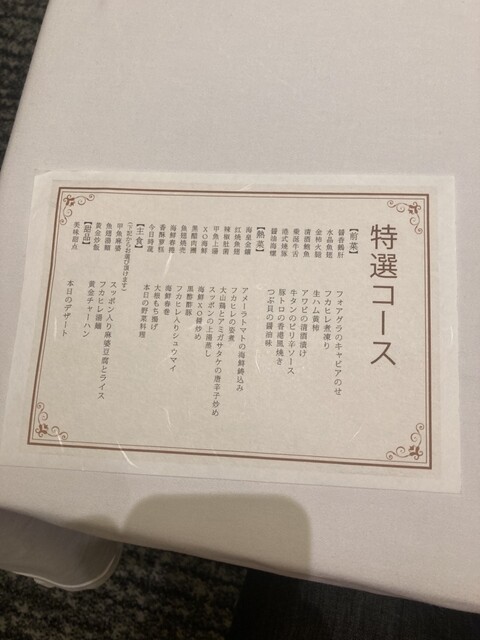 特選コース
【前菜】
醤香鵝肝　フォアグラのキャビアのせ
水晶魚翅　フカヒレ煮凍り
金柿火腿　生ハム黄柿
清酒鮑魚　アワビの清酒漬け
藥滋牛舌　牛タンのピリ辛ソース
港式焼豚　豚トロの香港風焼き
醤油海螺　つぶ貝の醤油味
【熱菜】
海皇金鑲　アメーラトマトの海鮮詰込み
紅焼魚翅　フカヒレの姿煮
辣椒肚菌　大山鶏とアミガサタケの唐辛子炒め
甲魚上湯　スッポンの上湯蒸し
XO海鮮　海鮮XO醤炒め
黒醋肉團　黒酢酢豚
魚翅焼売　フカヒレ入りシュウマイ
海鮮春捲　海鮮春巻
香酥蘿糕　大根もち揚げ
今日時蔬　本日の野菜料理
【主食】
(下記からお選び頂けます)
甲魚麻婆　スッポン入り麻婆豆腐とライス
魚翅湯麺　フカヒレ湯麺
黄金炒飯　黄金チャーハン
【甜品】
美味甜点　本日のデザート